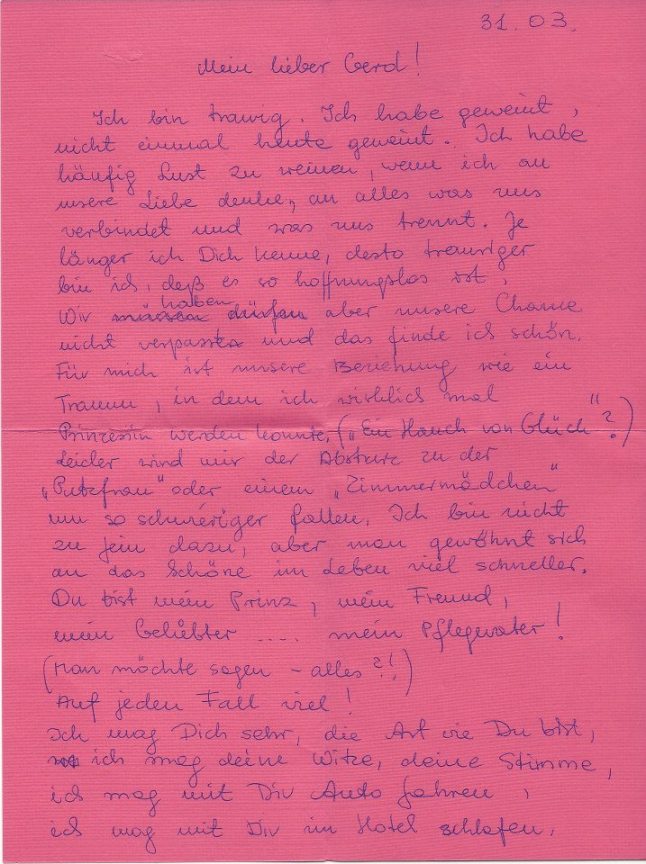 31.03.
Mein lieber Gerd!
Ich bin traurig. Ich habe geweint,
nicht einmal heute geweint. Ich habe
häufig Lust zu weinen, wenn ich an
unsere Liebe denke, an alles was uns
verbindet und was uns trennt. Je
länger ich Dich kenne, desto trauriger
bin ich, daß es so hoffnungslos ist.
haben
Wir müssen dürfen aber unsere Chance
nicht verpassen und das finde ich schön.
Für mich ist unsere Beziehung wie ein
Traum, in dem ich wirklich mal
Prinzessin werden konnte. („Ein Hauch von Glück"?)
Leider wird mir der Absturz zu der
„Putzfrau" oder einem „Zimmermädchen"
um so schwieriger fallen. Ich bin nicht
zu fein dazu, aber man gewöhnt sich
an das Schöne im Leben viel schneller.
Du bist mein Prinz, mein Freund,
mein Geliebter .... mein Pflegevater!
(Man möchte sagen – alles?!)
Auf jeden Fall viel!
Ich mag Dich sehr, die Art wie Du bist,
ich mag deine Witze, deine Stimme,
ich mag mit Dir Auto fahren,
ich mag mit Dir im Hotel schlafen.